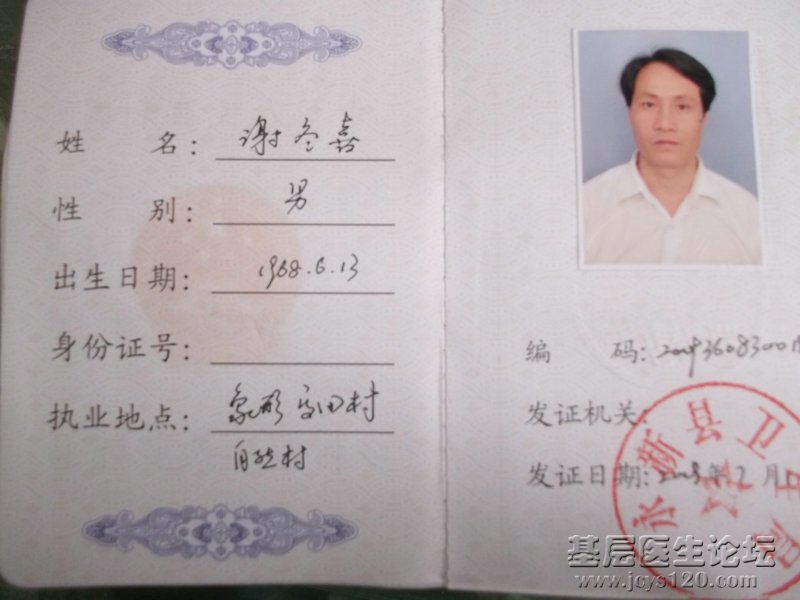 姓 名：谢冬嘉
性 别：男
出生日期：1968.6.13
身份证号：
执业地点：象形 田村
自然村
编 码：
发证机关：
永新县卫
发证日期： 年2月
基层医生论坛
www.jcys120.com